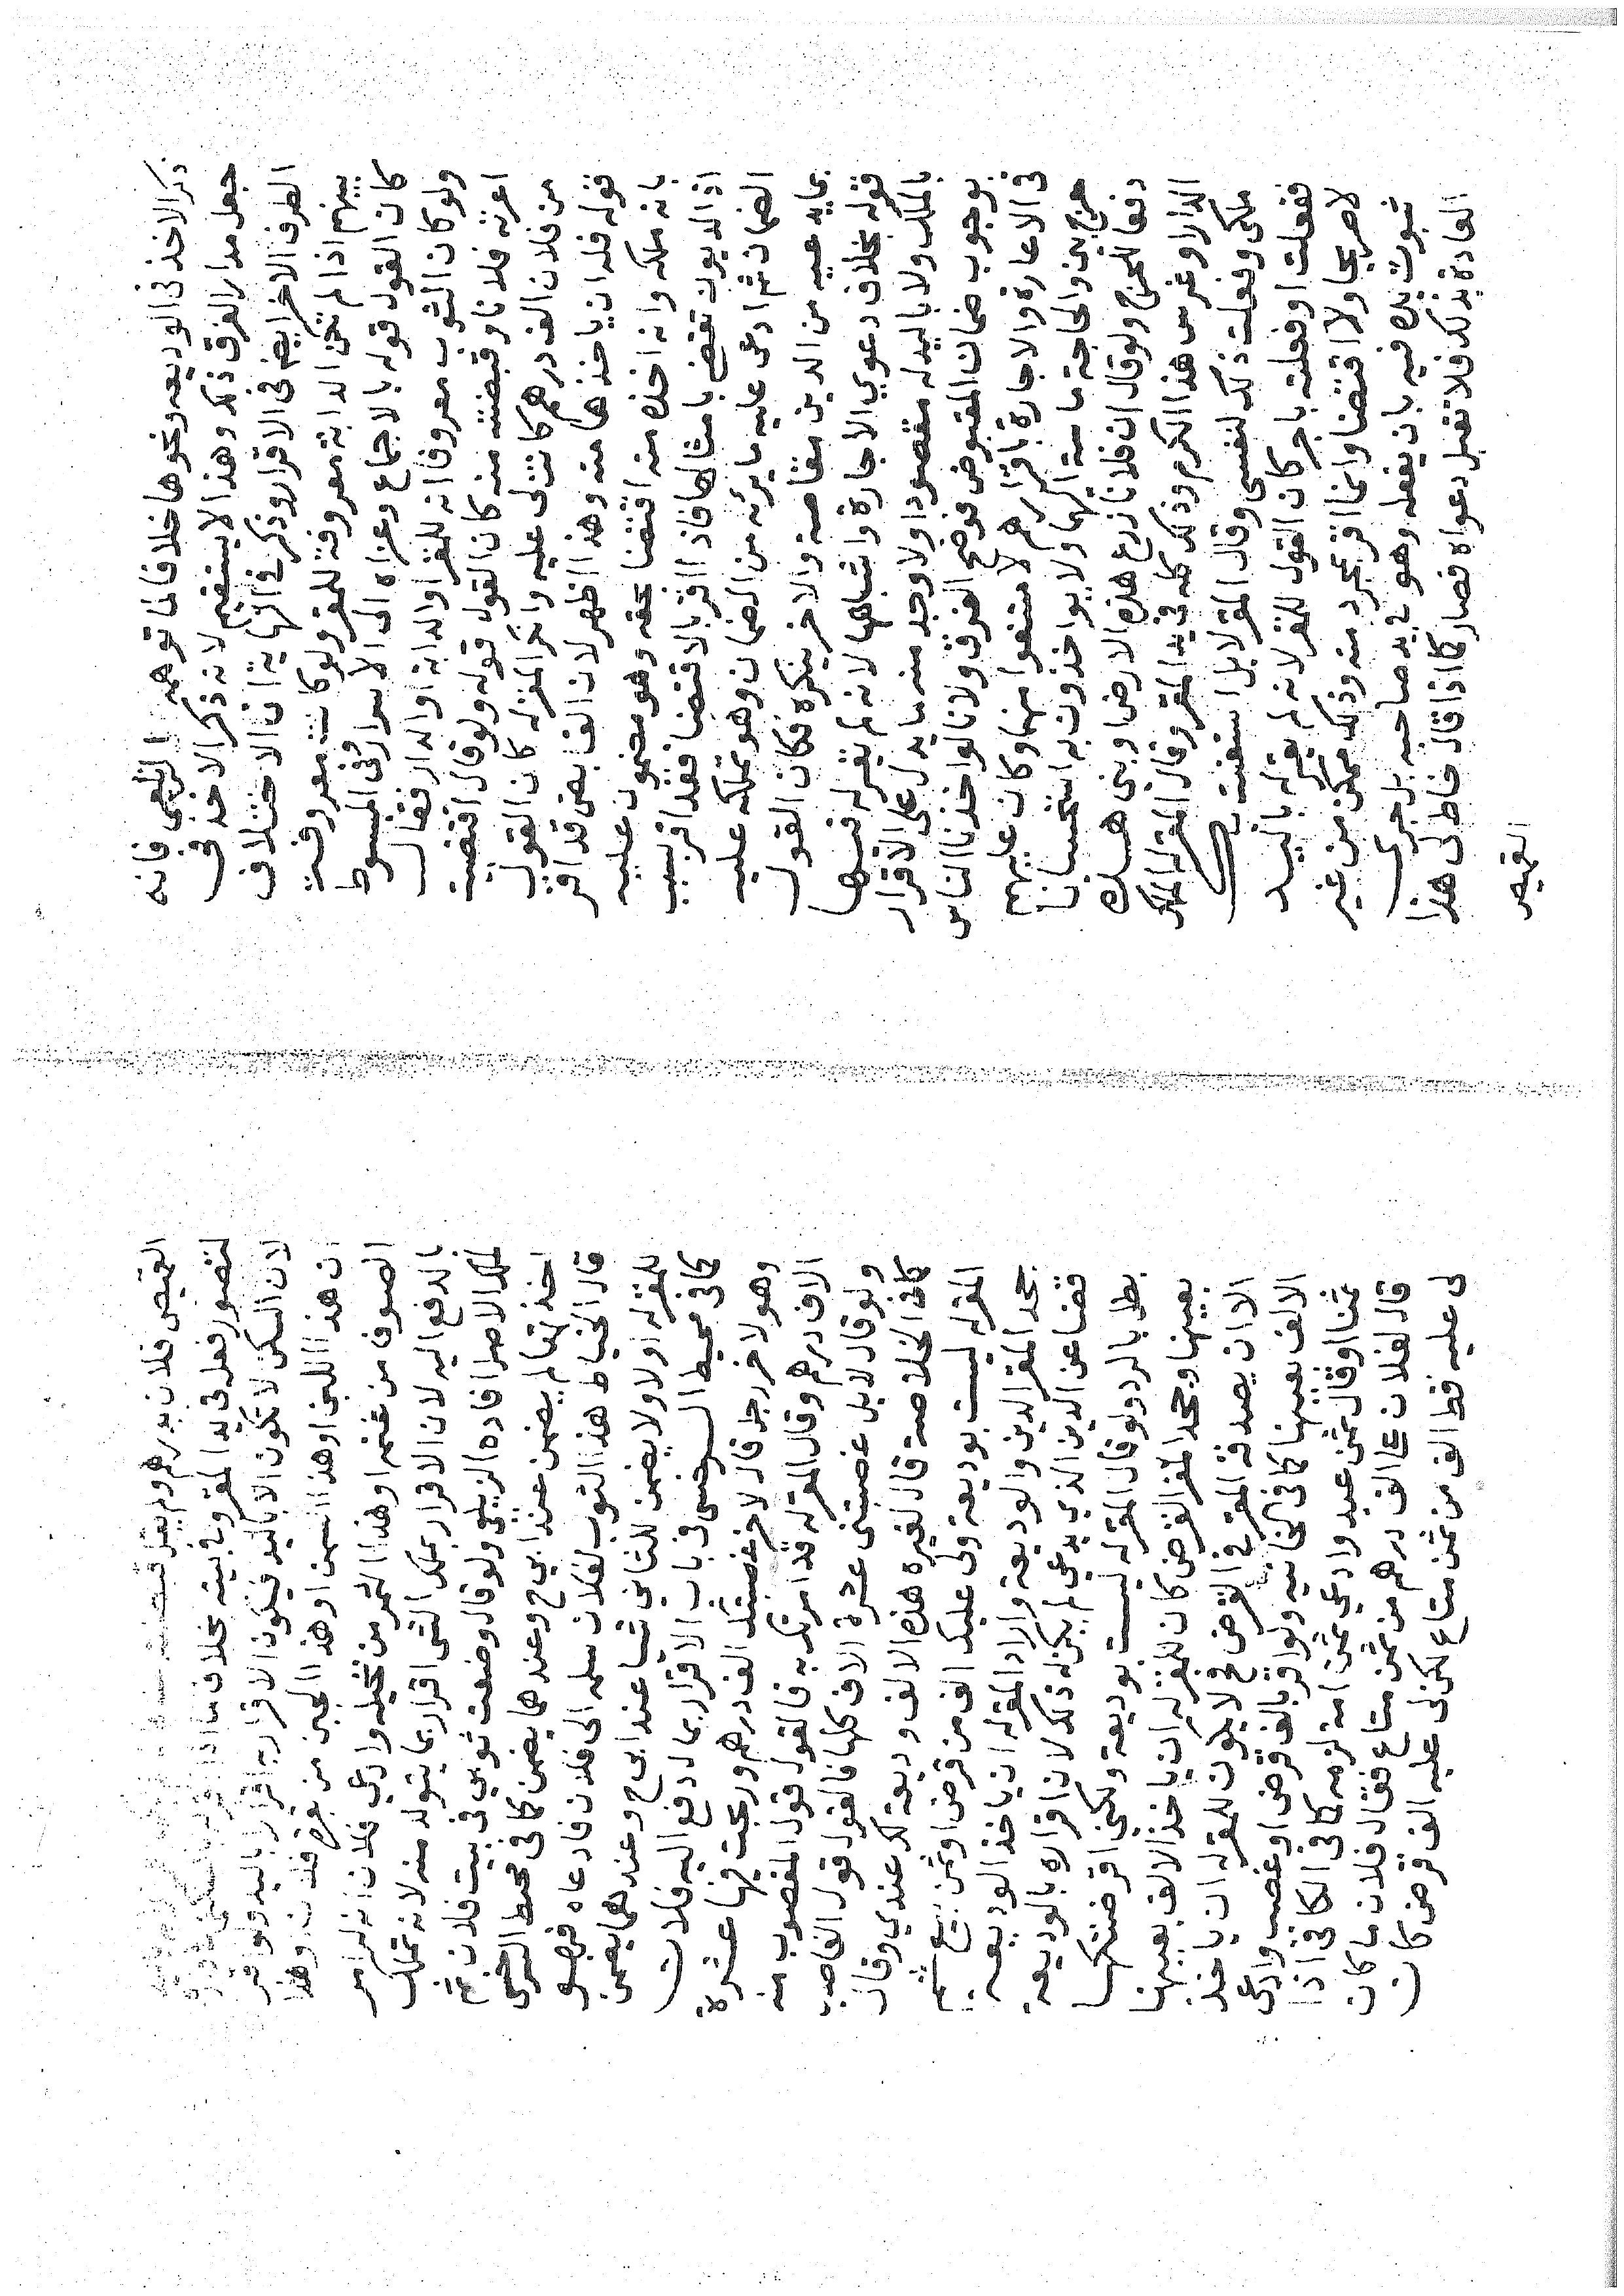 ذكر الاخذ في الوديعه ونحوها خلافا لما توهمه الزيلعي فانه
جعل مدار الفرق ذلك وهذا لا يستقيم لانه ذكر الاخذ في
الطرف الاخر ايضا في الاقرار وذكر في النهاية ان الاختلاف
بينهم اذا لم تكن الدابة معروفة للمقر ولو كانت معروفة
كان القول قوله بالاجماع وعزاه الى الاسرار وفي المبسوط
ولو كان الثوب معروفا انه للمقر او الدابة او الدار فقال
اعرته فلانا وقبضته منه كان القول قوله ولو قال اقتضيت
من فلان الف درهم كانت لي عليه وانكر المقر له كان القول
قوله فله ان ياخذها منه وهذا اظهر لان القابض قد اقر
بانه ملكه وانه اخذه منه اقتضا بحقه وهو مضمون عليه
اذ الديون تقضى بامثالها فاذا اقر بالاقتضا فقد اقر بسبب
الضمان ثم ادعى عليه ما يبرئه من الضمان وهو تملكه عليه
بما يدعيه من الدين مقاصة والاخر ينكره فكان القول
قوله بخلاف دعوي الاجارة واشباهها لانه لم يقر له فيها
بالملك ولا باليد له مقصودا ولا وجد منه ما يدل على الاقرار
بوجوب ضمان المقبوض فوضح الفرق ولانا لو اخذنا الناس
في الاعارة والاجارة باقرارهم لامتنعوا منهما وكان عليهم
حرج بين والحاجة ماسة اليهما ولا يواخذون به استحسانا
دفعا للحرج ولو قال ان فلانا زرع هذه الارض او بنى هذه
الدار او غرس هذا الكرم وذلك كله في يد المقر وقال المقر له الملك
ملكي وفعلت ذلك لنفسي وقال المقر لا بل استعنت بك
ففعلت او فعلته باجر كان القول للمقر لانه لم يقر له باليد
لا صريحا ولا اقتضا وانما اقر بمجرد منه وذلك ممكن من غير
ثبوت يده فيه بان يفعله وهو في يد صاحبه بل جرى
العادة بذلك فلا تقبل دعواه فصار كما اذا قال خاط لي هذا
القميص
القميص فلان بدرهم ولم يقل قبضته منه
لتصور فعله في يد المقر وفي بيته بخلاف ما اذا اقر
لان السكن لا تكون الا باليد فيكون الاقرار به اقرارا باليد ولو اقر
ان هذا اللبن او هذا السمن او هذا الجبن من بقر فلان وهذا
الصوف من غنمه او هذا التمر من نخيله وادعي فلان انه له امر
بالدفع اليه لان الاقرار بملك الشي اقرار بما يتولد منه لانه تملك
بملك الاصل افاده الزيلعي ولو قال وضعت ثوبي في بيت فلان ثم
اخذته لم يضمن عند ابي ح وعندهما يضمن كما في محيط السرخسي
قال الخياط هذا الثوب لفلان سلمه الى فلان فادعاه فهو
للمقر له اولا ولا يضمن للثاني شيا عند ابي ح وعندهما يضمن
كما في محيط السرخسي في باب الاقرار بما دفع اليه فلان
وهو لاخر رجل قال لاخر غصبتك الف درهم وربحت فيها عشرة
الاف درهم وقال المقر له قد امرتك به فالقول قول المغصوب منه
ولو قال لا بل غصبتني عشرة الاف كلها فالقول قول الغاصب
كما في الخلاصة قال لغيره هذه الالف وديعة لك عندي وقال
المقر له ليست بوديعة ولي عليك الف من قرض او ثمن بيع ثم
جحد المقر الدين والوديعة واراد المقر له ان ياخذ الوديعه
قضا عن الدين الذي يدعي لم يكن له ذلك لان اقراره بالوديعة
بطل بالرد ولو قال المقر له ليست بوديعة ولكني اقرضتكها
بعينها وجحد المقر القرض كان للمقر له ان ياخذ الالف بعينها
الا ان يصدقه المقر في القرض فلا يكون للمقر له ان ياخذ
الالف بعينها كما في الخانيه ولو اقر بالف قرض او غصب وادعى
ثمنا او قال ثمن عبد وادعي ثمن امة لزمه كما في الكافي اذا
قال لفلان علي الف درهم من ثمن متاع فقال فلان ما كان
لي عليه قط الف من ثمن متاع لكن لي عليه الف قرض كان